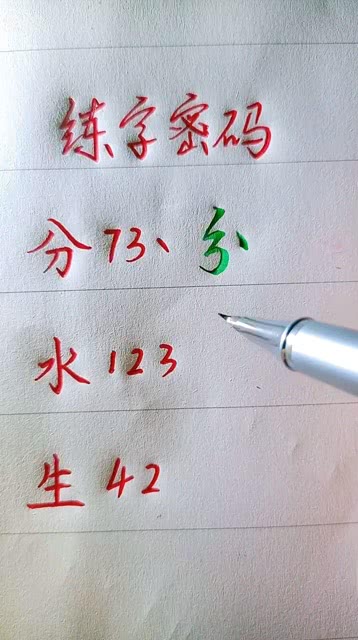 练字密码
分 73、 分
水 123
生 42